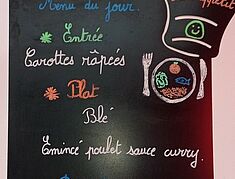 Menu du jour.
appétit
Entrée
Carottes râpées
Plat
Blé
Emincé poulet sauce curry.